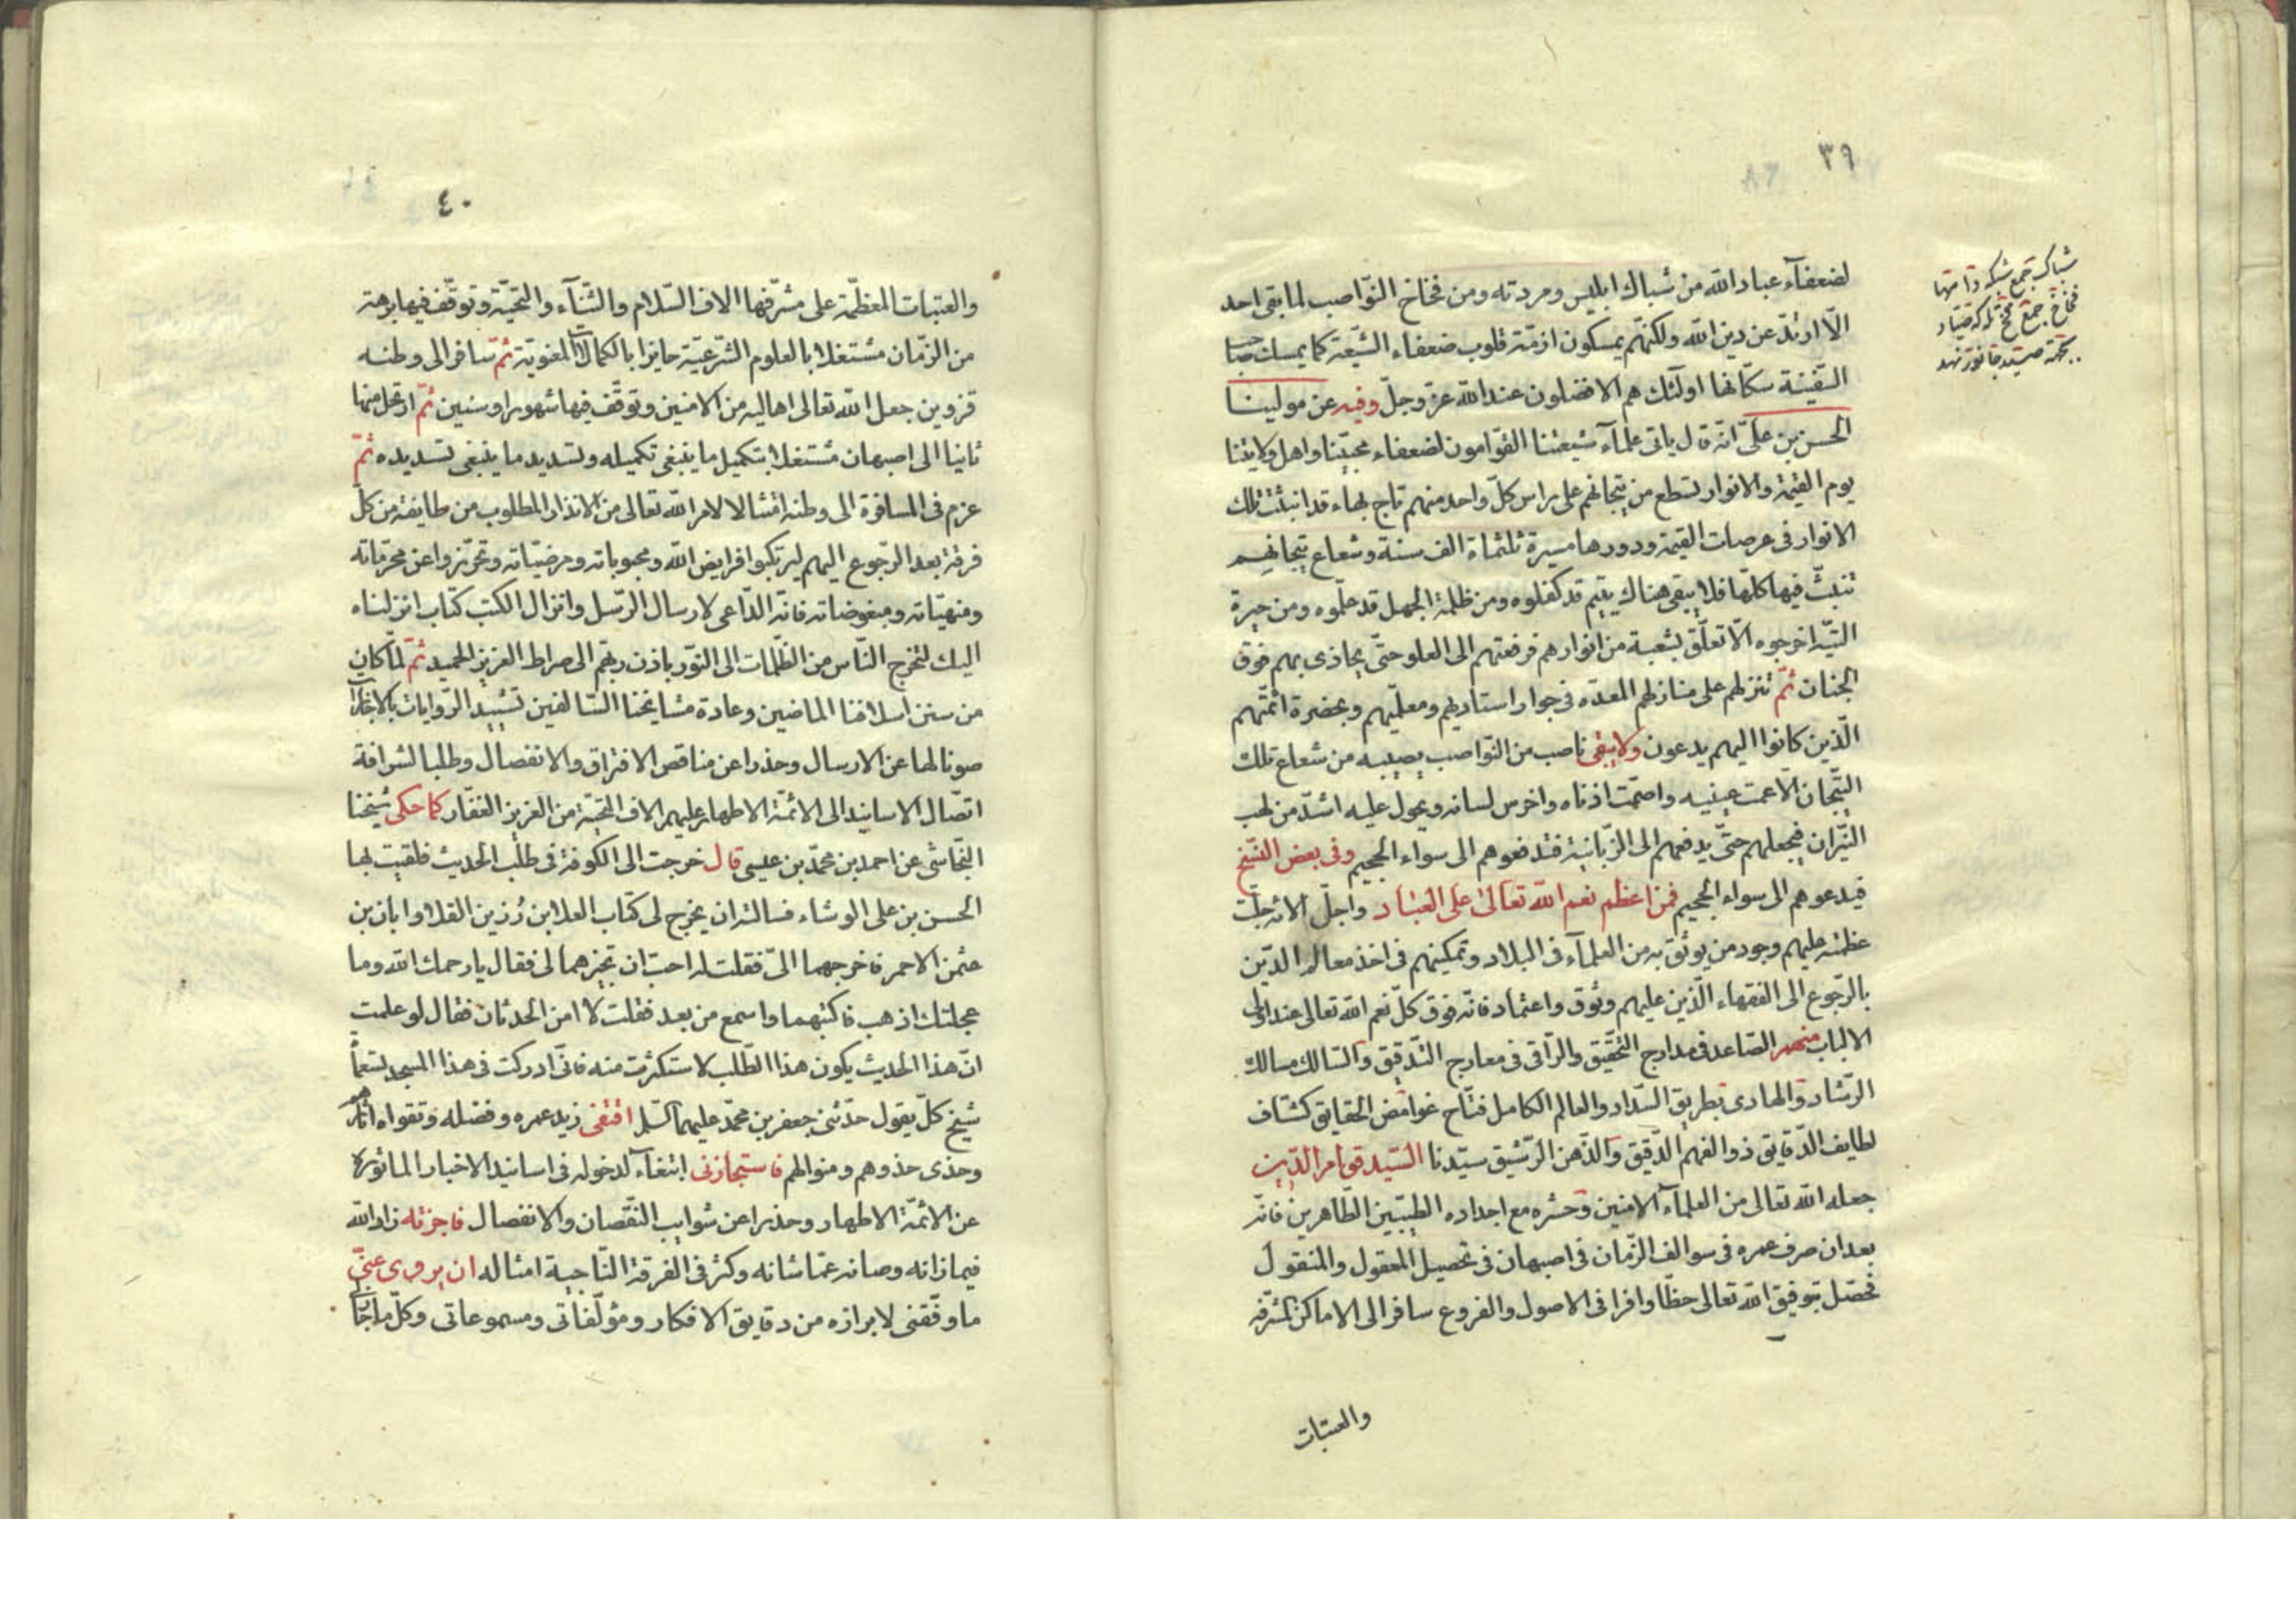 ٣٩
لضعفآء عباد الله من شباك ابليس ومردته ومن فخاخ النواصب لما بقى احد
الّا ارتدّ عن دين الله ولكنّهم يمسكون ازمّة قلوب ضعفاء الشّيعة كما يمسك صاحب
السّفينة سكّانها اولئك هم الافضلون عند الله عزّ وجلّ وفيه عن مولينا
الحسن بن علىّ انّه قال ياتى علمآء شيعتنا القوّامون لضعفاء محبّينا واهل ولايتنا
يوم القيمة والانوار تسطع من تيجانهم على راس كلّ واحد منهم تاج بهاء قد انبثّت تلك
الانوار فى عرصات القيمة ودورها مسيرة ثلثماة الف سنة وشعاع تيجانهم
تنبثّ فيها كلّها فلا يبقى هناك يتيم قد كفلوه ومن ظلمة الجهل قد علّموه ومن حيرة
التيّه اخرجوه الّا تعلّق بشعبة من انوارهم فرفعتهم الى العلو حتّى يحاذى بهم فوق
الجنان ثمّ تنزلهم على منازلهم المعدّه فى جوار استاديهم ومعلّميهم وبحضرة ائمّتهم
الّذين كانوا اليهم يدعون ولا يبقى ناصب من النّواصب يصيبه من شعاع تلك
التّيجان الّا عمت عينيه واصمّت اذناه واخرس لسانه ويحول عليه اشدّ من لهب
النّيران فيحملهم حتّى يدفعهم الى الزّبانية فتدفعوهم الى سواء الجحيم وفى بعض النّسخ
فيدعوهم الى سواء الجحيم فمن اعظم نعم الله تعالى على العباد واجلّ الائه جلّت
عظمته عليهم وجود من يوثق به من العلمآء فى البلاد وتمكينهم فى اخذ معالم الدّين
بالرّجوع الى الفقهاء الّذين عليهم وثوق واعتماد فانّه فوق كلّ نعم الله تعالى عند اولى
الالباب منهم الصّاعد فى مدارج التّحقيق والرّاقى فى معارج التّدقيق والسّالك مسالك
الرّشاد والهادى بطريق السّداد والعالم الكامل فتّاح غوامض الحقايق كشّاف
لطايف الدّقايق ذو الفهم الدّقيق والذّهن الرّشيق سيّدنا السّيد قوام الدّين
جعله الله تعالى من العلمآء الامنين وحشره مع اجداده الطّيبين الطّاهرين فانّه
بعد ان صرف عمره فى سوالف الزّمان فى اصبهان فى تحصيل المعقول والمنقول
فحصّل بتوفيق الله تعالى حظّا وافرا فى الاصول والفروع سافر الى الاماكن المشرّفة
والعتبات
شباك جمع شبكه
فخاخ جمع فخ
٤٠
والعتبات المعظّمة على مشرّفها الاف السّلام والثّنآء والتّحيّة وتوقّف فيها برهة
من الزّمان مشتغلا بالعلوم الشّرعيّة حايزا بالكمالات المعنويّة ثمّ سافر الى وطنه
قزوين جعل الله تعالى اهاليه من الامنين وتوقّف فيها شهورا وسنين ثمّ ارتحل منها
ثانيا الى اصبهان مشتغلا بتكميل ما ينبغى تكميله وتسديد ما ينبغى تسديده ثمّ
عزم فى المسافرة الى وطنه امتثالا لامر الله تعالى من الانذار المطلوب من طايفة من كلّ
فرقة بعد الرّجوع اليهم ليرتكبوا فرايض الله ومحبوباته ومرضيّاته وتحرّزوا عن محرّماته
ومنهيّاته ومبغوضاته فانّه الدّاعى لارسال الرّسل وانزال الكتب كتاب انزلناه
اليك لتخرج النّاس من الظّلمات الى النّور باذن ربّهم الى صراط العزيز الحميد ثمّ لمّا كان
من سنن اسلافنا الماضين وعادة مشايخنا السّالفين تشييد الرّوايات بالاجازات
صونا لها عن الارسال وحذرا عن مناقص الافتراق والانفصال وطلبا لشرافة
اتّصال الاسانيد الى الائمّة الاطهار عليهم الاف التّحيّة من العزيز الغفّار كما حكى شيخنا
النّجاشى عن احمد بن محمّد بن عيسى قال خرجت الى الكوفة فى طلب الحديث فلقيت بها
الحسن بن على الوشاء فسالته ان يخرج لى كتاب العلا بن رزين القلا وابان بن
عثمن الاحمر فاخرجهما الىّ فقلت له احبّ ان تجيزهما لى فقال يا رحمك الله وما
عجلتك اذهب فاكتبهما واسمع من بعد فقلت لا امن الحدثان فقال لو علمت
انّ هذا الحديث يكون هذا الطّلب لاستكثرت منه فانّى ادركت فى هذا المسجد تسعمأة
شيخ كلّ يقول حدّثنى جعفر بن محمّد عليهما السّلم اقتفى زيد عمره وفضله وتقواه اثارهم
وحذى حذوهم ومنوالهم فاستجازنى ابتغآء لدخوله فى اسانيد الاخبار الماثورة
عن الائمّة الاطهار وحذرا عن شوايب النّقصان والانفصال فاجزته زاد الله
فيما زانه وصانه عمّا شانه وكثر فى الفرقة النّاجية امثاله ان يروى عنّى
ما وفّقنى لابرازه من دقايق الافكار ومؤلّفاتى ومسموعاتى وكلّ ما جاز